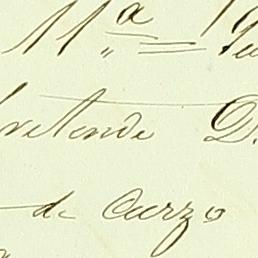 11ª = 
pretende D.
de Curzo